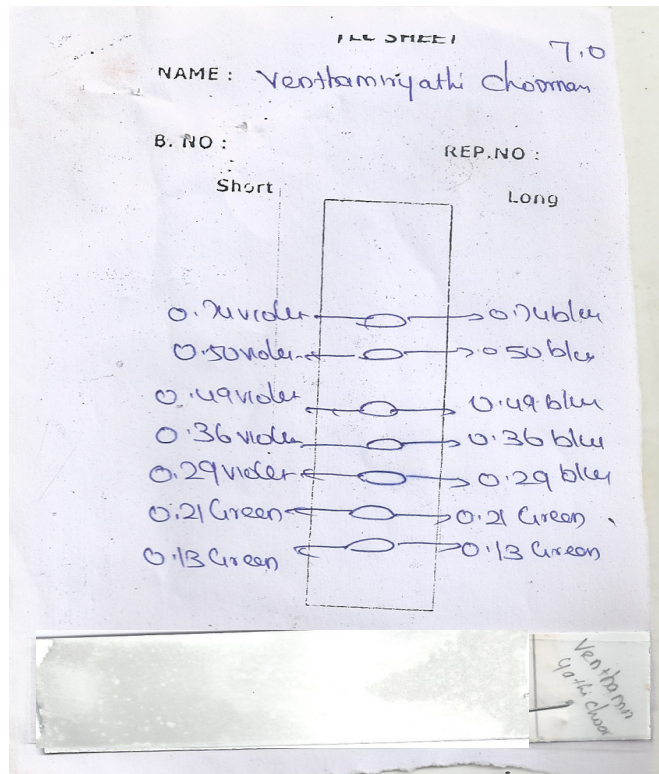 TLC SHEET
7.0
NAME : Venthamiryathi Choornam
B. NO :
REP.NO :
Short
Long
0.74 violet 0.74 blue
0.50 violet 0.50 blue
0.49 violet 0.49 blue
0.36 violet 0.36 blue
0.29 violet 0.29 blue
0.21 Green 0.21 Green
0.13 Green 0.13 Green
Venthamn
yathi choor